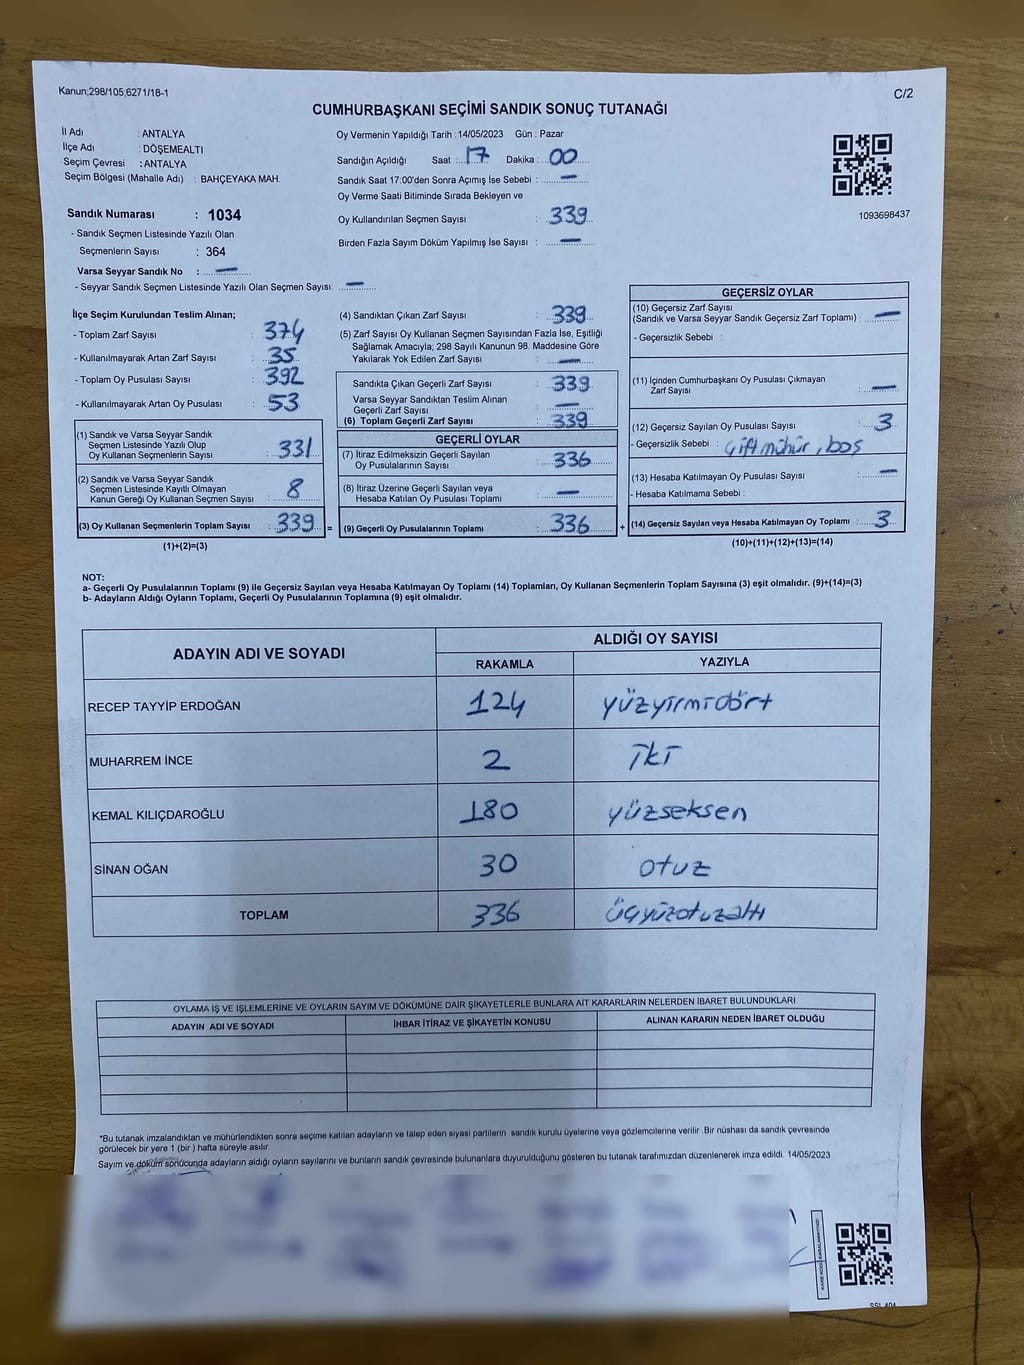 Kanun;298/105;6271/18-1
C/2
CUMHURBAŞKANI SEÇİMİ SANDIK SONUÇ TUTANAĞI
İl Adı : ANTALYA
İlçe Adı : DÖŞEMEALTI
Seçim Çevresi : ANTALYA
Seçim Bölgesi (Mahalle Adı) : BAHÇEYAKA MAH.
Sandık Numarası : 1034
- Sandık Seçmen Listesinde Yazılı Olan
Seçmenlerin Sayısı : 364
Varsa Seyyar Sandık No : —
- Seyyar Sandık Seçmen Listesinde Yazılı Olan Seçmen Sayısı: —
Oy Vermenin Yapıldığı Tarih :14/05/2023 Gün : Pazar
Sandığın Açıldığı Saat : 17 Dakika : 00
Sandık Saat 17:00'den Sonra Açımış İse Sebebi : —
Oy Verme Saati Bitiminde Sırada Bekleyen ve
Oy Kullandırılan Seçmen Sayısı : 339
Birden Fazla Sayım Döküm Yapılmış İse Sayısı : —
1093698437
İlçe Seçim Kurulundan Teslim Alınan;
- Toplam Zarf Sayısı : 374
- Kullanılmayarak Artan Zarf Sayısı : 35
- Toplam Oy Pusulası Sayısı : 392
- Kullanılmayarak Artan Oy Pusulası : 53
(1) Sandık ve Varsa Seyyar Sandık
Seçmen Listesinde Yazılı Olup
Oy Kullanan Seçmenlerin Sayısı : 331
(2) Sandık ve Varsa Seyyar Sandık
Seçmen Listesinde Kayıtlı Olmayan
Kanun Gereği Oy Kullanan Seçmen Sayısı : 8
(3) Oy Kullanan Seçmenlerin Toplam Sayısı : 339 =
(1)+(2)=(3)
(4) Sandıktan Çıkan Zarf Sayısı : 339
(5) Zarf Sayısı Oy Kullanan Seçmen Sayısından Fazla İse, Eşitliği
Sağlamak Amacıyla; 298 Sayılı Kanunun 98. Maddesine Göre
Yakılarak Yok Edilen Zarf Sayısı : —
Sandıkta Çıkan Geçerli Zarf Sayısı : 339
Varsa Seyyar Sandıktan Teslim Alınan
Geçerli Zarf Sayısı : —
(6) Toplam Geçerli Zarf Sayısı : 339
GEÇERLİ OYLAR
(7) İtiraz Edilmeksizin Geçerli Sayılan
Oy Pusulalarının Sayısı : 336
(8) İtiraz Üzerine Geçerli Sayılan veya
Hesaba Katılan Oy Pusulası Toplamı : —
(9) Geçerli Oy Pusulalarının Toplamı : 336 +
GEÇERSİZ OYLAR
(10) Geçersiz Zarf Sayısı
(Sandık ve Varsa Seyyar Sandık Geçersiz Zarf Toplamı) : —
- Geçersizlik Sebebi :
(11) İçinden Cumhurbaşkanı Oy Pusulası Çıkmayan
Zarf Sayısı : —
(12) Geçersiz Sayılan Oy Pusulası Sayısı : 3
- Geçersizlik Sebebi : çift mühür, boş
(13) Hesaba Katılmayan Oy Pusulası Sayısı : —
- Hesaba Katılmama Sebebi :
(14) Geçersiz Sayılan veya Hesaba Katılmayan Oy Toplamı : 3
(10)+(11)+(12)+(13)=(14)
NOT:
a- Geçerli Oy Pusulalarının Toplamı (9) ile Geçersiz Sayılan veya Hesaba Katılmayan Oy Toplamı (14) Toplamları, Oy Kullanan Seçmenlerin Toplam Sayısına (3) eşit olmalıdır. (9)+(14)=(3)
b- Adayların Aldığı Oyların Toplamı, Geçerli Oy Pusulalarının Toplamına (9) eşit olmalıdır.
ADAYIN ADI VE SOYADI
ALDIĞI OY SAYISI
RAKAMLA YAZIYLA
RECEP TAYYİP ERDOĞAN 124 yüzyirmidört
MUHARREM İNCE 2 iki
KEMAL KILIÇDAROĞLU 180 yüzseksen
SİNAN OĞAN 30 otuz
TOPLAM 336 üçyüzotuzaltı
OYLAMA İŞ VE İŞLEMLERİNE VE OYLARIN SAYIM VE DÖKÜMÜNE DAİR ŞİKAYETLERLE BUNLARA AİT KARARLARIN NELERDEN İBARET BULUNDUKLARI
ADAYIN ADI VE SOYADI İHBAR İTİRAZ VE ŞİKAYETİN KONUSU ALINAN KARARIN NEDEN İBARET OLDUĞU
*Bu tutanak imzalandıktan ve mühürlendikten sonra seçime katılan adayların ve talep eden siyasi partilerin sandık kurulu üyelerine veya gözlemcilerine verilir .Bir nüshası da sandık çevresinde
görülecek bir yere 1 (bir ) hafta süreyle asılır.
Sayım ve döküm sonucunda adayların aldığı oyların sayılarını ve bunların sandık çevresinde bulunanlara duyurulduğunu gösteren bu tutanak tarafımızdan düzenlenerek imza edildi. 14/05/2023